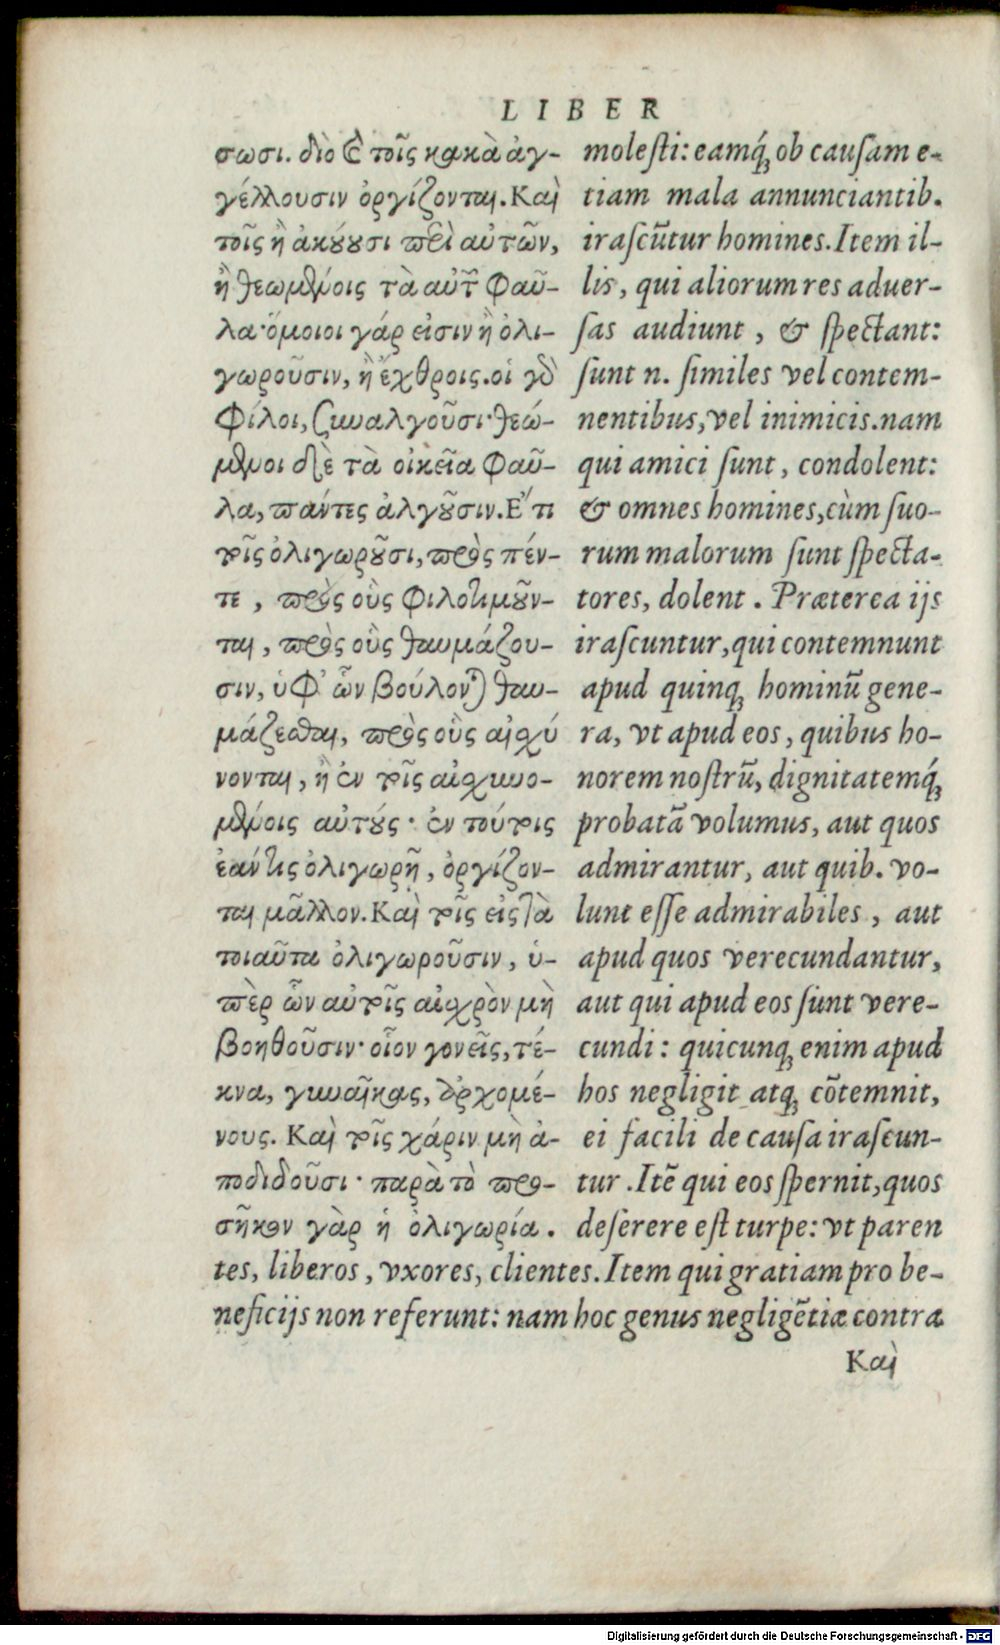 LIBER
σωσι. διὸ καὶ τοῖς κακὰ ἀγ-
γέλλουσιν ὀργίζονται. Καὶ
τοῖς ἢ ἀκούουσι περὶ αὐτῶν,
ἢ θεωμένοις τὰ αὐτῶν φαῦ-
λα· ὅμοιοι γάρ εἰσιν ἢ ὀλι-
γωροῦσιν, ἢ ἐχθροῖς. οἱ γὰρ
φίλοι, συναλγοῦσι· θεώ-
μενοι δὲ τὰ οἰκεῖα φαῦ-
λα, πάντες ἀλγοῦσιν. Ἔτι
τοῖς ὀλιγωροῦσι, πρὸς πέν-
τε, πρὸς οὓς φιλοτιμοῦν-
ται, πρὸς οὓς θαυμάζου-
σιν, ὑφ' ὧν βούλονται θαυ-
μάζεσθαι, πρὸς οὓς αἰσχύ
νονται, ἢ ἐν τοῖς αἰσχυνο-
μένοις αὐτούς· ἐν τούτοις
ἐάν τις ὀλιγωρῇ, ὀργίζον-
ται μᾶλλον. Καὶ τοῖς εἰς τὰ
τοιαῦτα ὀλιγωροῦσιν, ὑ-
πὲρ ὧν αὐτοῖς αἰσχρὸν μὴ
βοηθοῦσιν· οἷον γονεῖς, τέ-
κνα, γυναῖκας, ἀρχομέ-
νους. Καὶ τοῖς χάριν μὴ ἀ-
ποδιδοῦσι· παρὰ τὸ προ-
σῆκον γὰρ ἡ ὀλιγωρία.
molesti: eamq́; ob causam e-
tiam mala annunciantib.
irascūtur homines. Item il-
lis, qui aliorum res aduer-
sas audiunt, & spectant:
sunt n. similes vel contem-
nentibus, vel inimicis. nam
qui amici sunt, condolent:
& omnes homines, cùm suo-
rum malorum sunt specta-
tores, dolent. Præterea ijs
irascuntur, qui contemnunt
apud quinq; hominū gene-
ra, vt apud eos, quibus ho-
norem nostrū, dignitatemq́;
probatā volumus, aut quos
admirantur, aut quib. vo-
lunt esse admirabiles, aut
apud quos verecundantur,
aut qui apud eos sunt vere-
cundi: quicunq; enim apud
hos negligit atq; cōtemnit,
ei facili de causa irascun-
tur. Itē qui eos spernit, quos
deserere est turpe: vt paren
tes, liberos, vxores, clientes. Item qui gratiam pro be-
neficijs non referunt: nam hoc genus negligētiæ contra
Καὶ
Digitalisierung gefördert durch die Deutsche Forschungsgemeinschaft - DFG